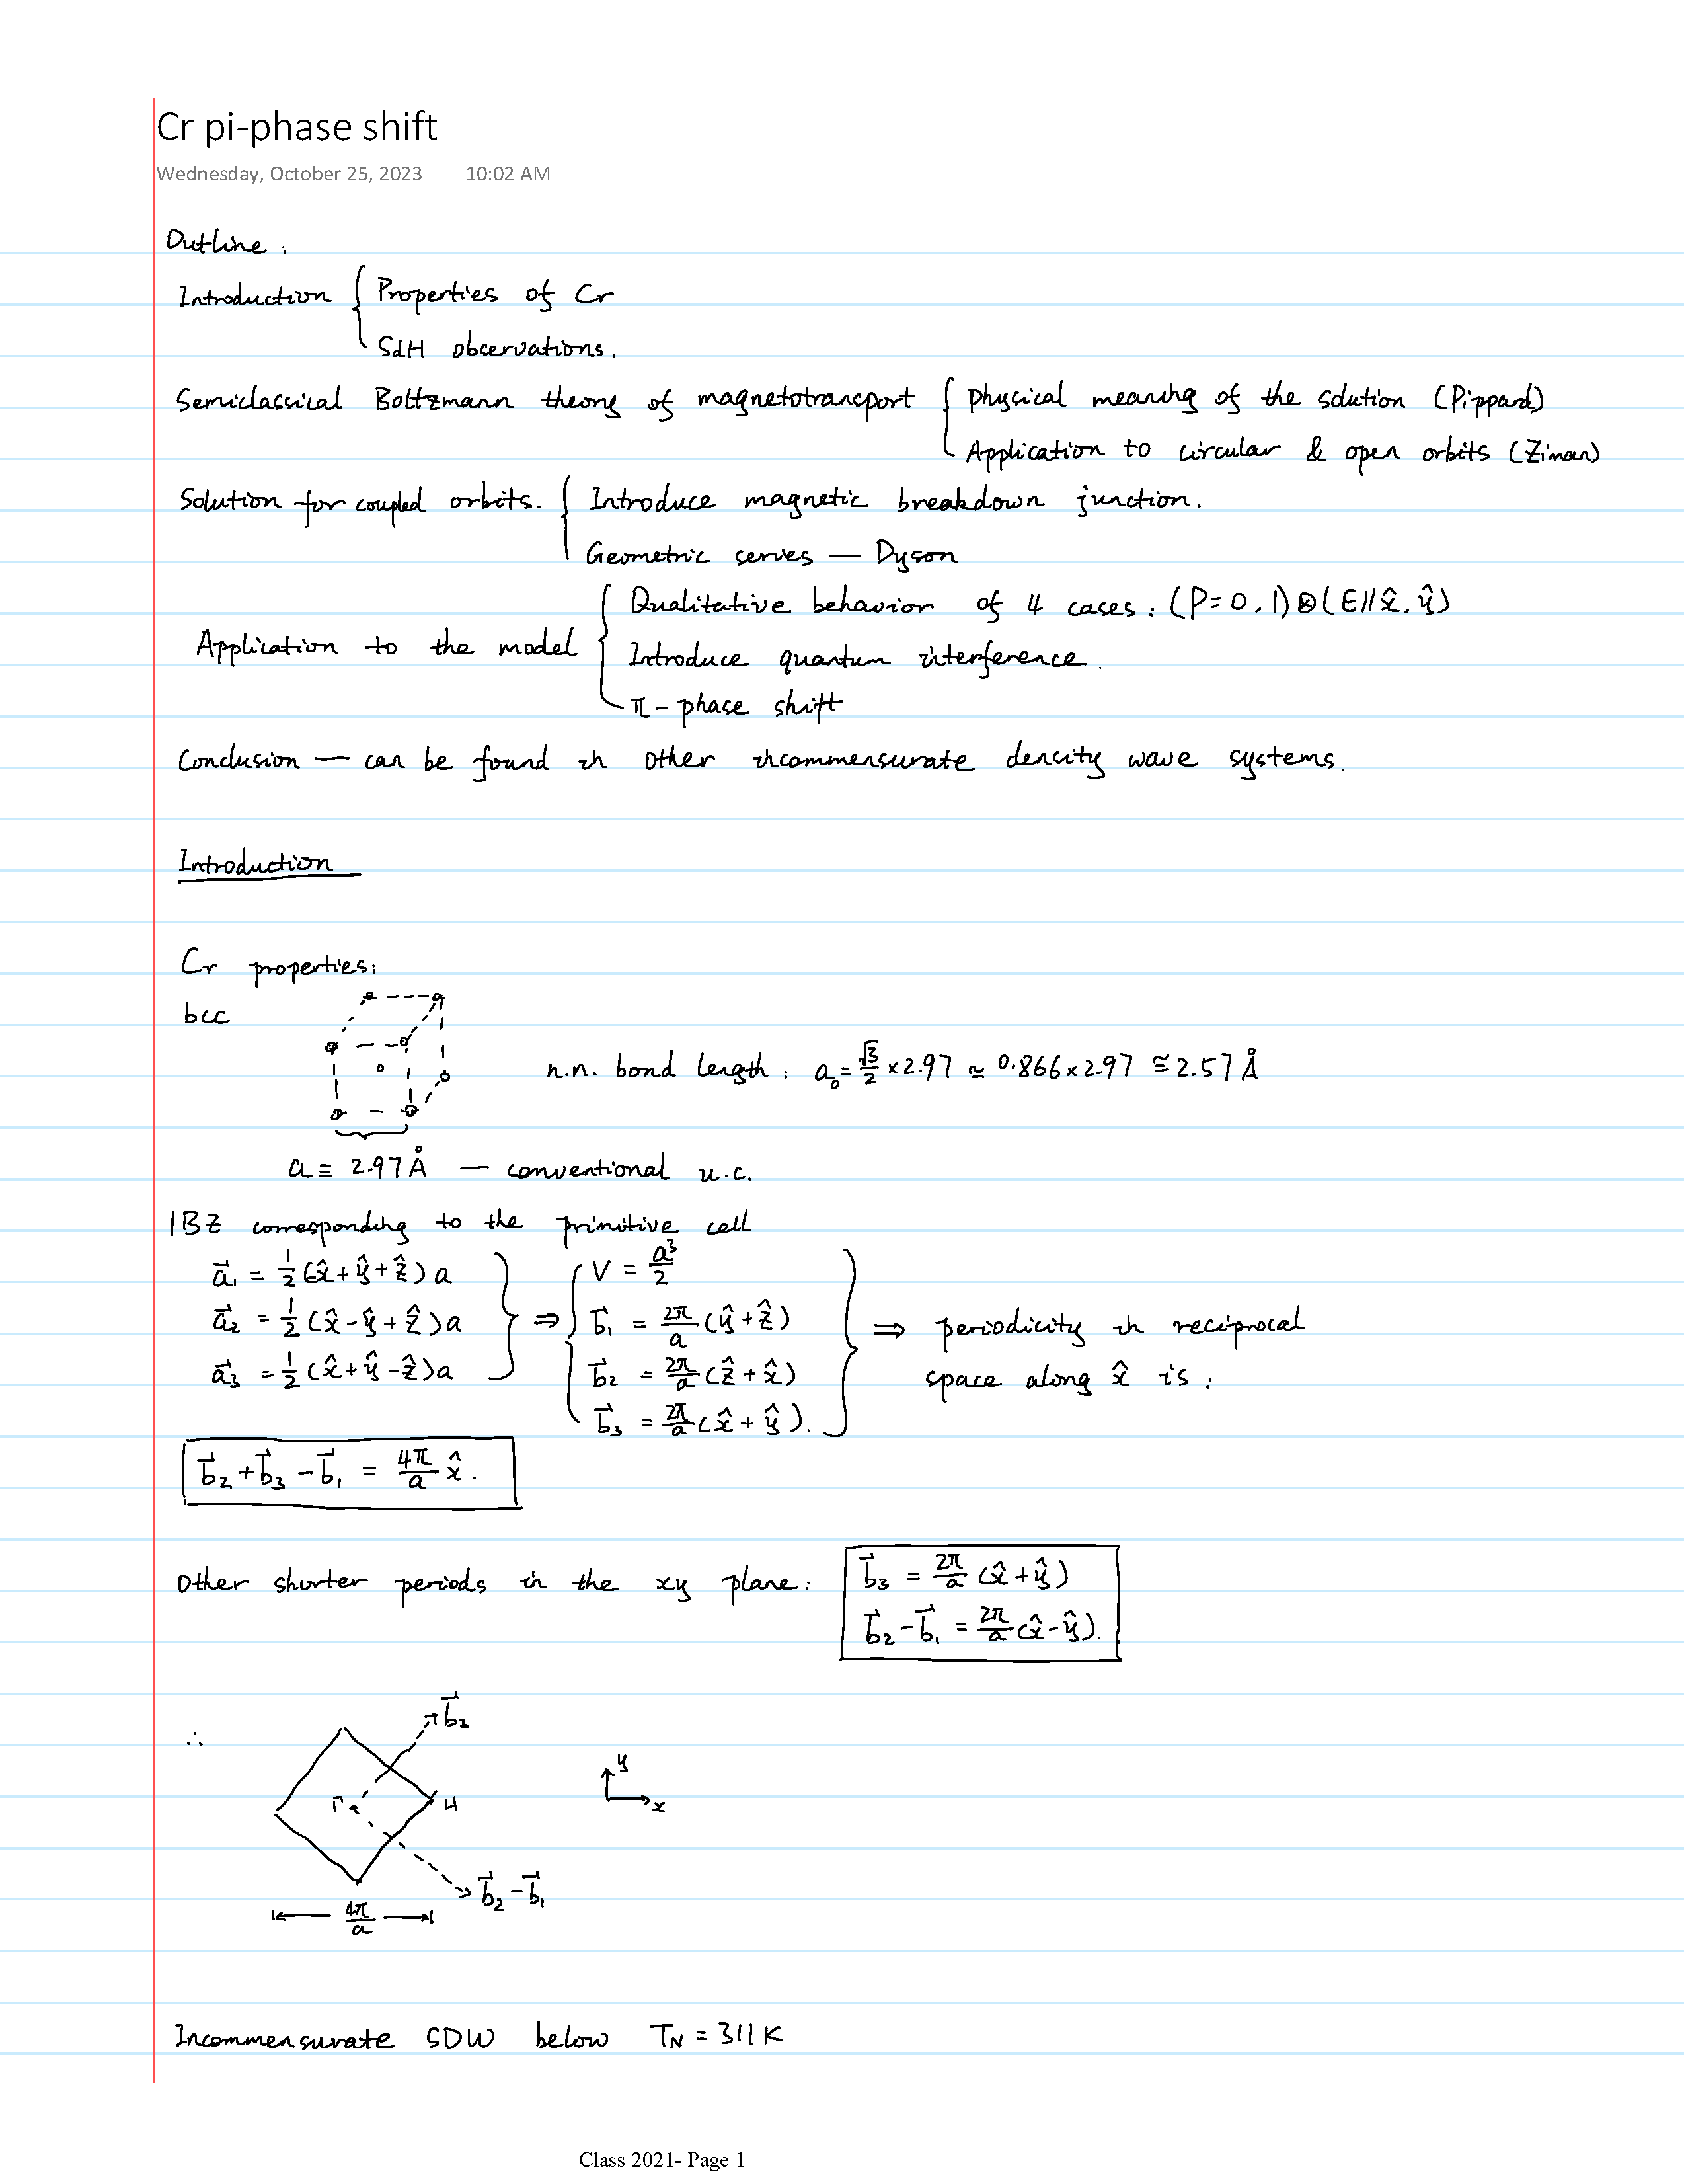 Cr pi-phase shift
Wednesday, October 25, 2023 10:02 AM
Outline :
Introduction { Properties of Cr
SdH observations.
Semiclassical Boltzmann theory of magnetotransport { Physical meaning of the solution (Pippard)
Application to circular & open orbits (Ziman)
Solution for coupled orbits. { Introduce magnetic breakdown junction.
Geometric series — Dyson
Application to the model { Qualitative behavior of 4 cases : (P=0,1)⊗(E∥x̂,ŷ)
Introduce quantum interference.
π-phase shift
Conclusion — can be found in other incommensurate density wave systems.
Introduction
Cr properties:
bcc
n.n. bond length : a₀ = √3/2 × 2.97 ≃ 0.866×2.97 ≅ 2.57 Å
a ≡ 2.97 Å — conventional u.c.
1BZ corresponding to the primitive cell
a⃗₁ = 1/2 (-x̂+ŷ+ẑ) a
a⃗₂ = 1/2 (x̂-ŷ+ẑ) a
a⃗₃ = 1/2 (x̂+ŷ-ẑ) a
⇒ { V = a³/2
b⃗₁ = 2π/a (ŷ+ẑ)
b⃗₂ = 2π/a (ẑ+x̂)
b⃗₃ = 2π/a (x̂+ŷ).
⇒ periodicity in reciprocal
space along x̂ is :
b⃗₂+b⃗₃-b⃗₁ = 4π/a x̂.
Other shorter periods in the xy plane:
b⃗₃ = 2π/a (x̂+ŷ)
b⃗₂-b⃗₁ = 2π/a (x̂-ŷ).
∴
b⃗₃
Γ H
y
x
b⃗₂-b⃗₁
4π/a
Incommensurate SDW below T_N = 311 K
Class 2021- Page 1